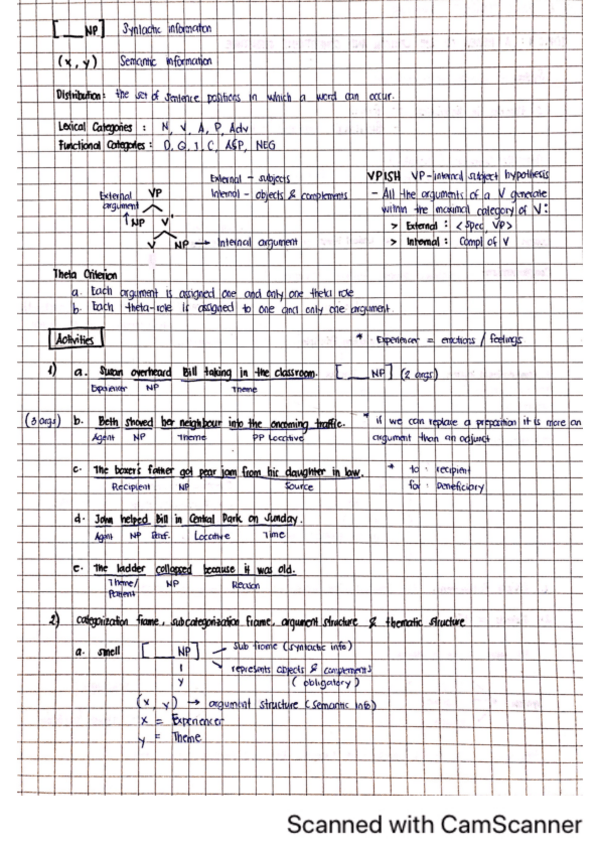 [ ___ NP] Syntactic information
(x, y) Semantic information
Distribution: the set of sentence positions in which a word can occur.
Lexical Categories : N, V, A, P, Adv
Functional Categories : D, Q, I, C, ASP, NEG
External - subjects
Internal - objects & complements
External argument
VP
NP V'
V NP → Internal argument
VPISH VP-internal subject hypothesis
- All the arguments of a V generate
within the maximal category of V:
> External : <Spec, VP>
> Internal : Compl of V
Theta Criterion
a. Each argument is assigned one and only one theta role
b. Each theta-role is assigned to one and only one argument
Activities
* Experiencer = emotions / feelings
1) a. Susan overheard Bill taking in the classroom. [ ___ NP] (2 args)
Experiencer NP Theme
(3 args) b. Beth shoved her neighbour into the oncoming traffic.
Agent NP Theme PP Locative
* if we can replace a preposition it is more an
argument than an adjunct
c. The boxer's father got pear jam from his daughter in law.
Recipient NP Source
* to : recipient
for : beneficiary
d. John helped Bill in Central Park on Sunday.
Agent NP Benf. Locative Time
e. The ladder collapsed because it was old.
Theme/ NP Reason
Patient
2) categorization frame, subcategorization frame, argument structure & thematic structure
a. smell [ ___ NP] - Sub frame (syntactic info)
represents objects & complements
y (obligatory)
(x, y) → argument structure (semantic info)
x = Experiencer
y = Theme
Scanned with CamScanner